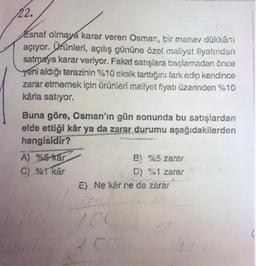 22.
Esnaf olmaya karar veren Osman, bir manav dükkânı
açıyor. Ürünleri, açılış gününe özel maliyet fiyatından
satmaya karar veriyor. Fakat satışlara başlamadan önce
yeni aldığı terazinin %10 eksik tarttığını fark edip kendince
zarar etmemek için ürünleri maliyet fiyatı üzerinden %10
kârla satıyor.
Buna göre, Osman'ın gün sonunda bu satışlardan
elde ettiği kâr ya da zarar durumu aşağıdakilerden
hangisidir?
A) %5 kâr B) %5 zarar
C) %1 kâr D) %1 zarar
E) Ne kâr ne da zarar